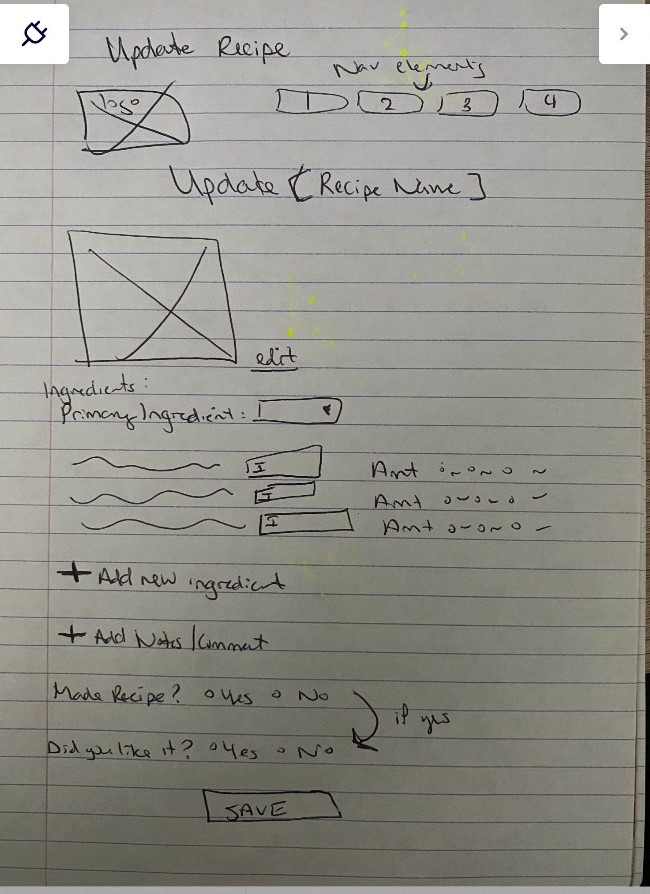 Update Recipe
Nav elements
Logo
1 2 3 4
Update [Recipe Name]
edit
Ingredients:
Primary Ingredient:
I Amt
I Amt
I Amt
+ Add new ingredient
+ Add Notes/Comment
Made Recipe? o Yes o No
if yes
Did you like it? o Yes o No
SAVE